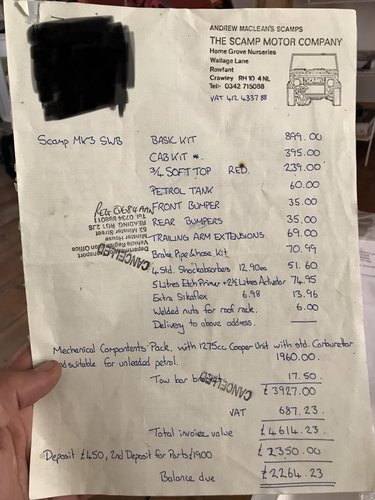 ANDREW MACLEAN'S SCAMPS
THE SCAMP MOTOR COMPANY
Home Grove Nurseries
Wallage Lane
Rowfant
Crawley RH10 4NL
Tel:- 0342 715088
VAT 412 4337 88
Scamp MK3 SWB BASIC KIT 899.00
CAB KIT 395.00
3/4 SOFT TOP RED. 239.00
PETROL TANK 60.00
FRONT BUMPER 35.00
REAR BUMPERS 35.00
TRAILING ARM EXTENSIONS 69.00
Brake Pipe & hose Kit 70.99
4 Std. Shockabsorbers 12.90ea 51.60
5 Litres Etch Primer + 2½ Litres Activator 74.95
Extra Sikaflex 6.98 13.96
Welded nuts for roof rack. 6.00
Delivery to above address. ——
REG
Department of Transport
Vehicle Registration Office
Minster House
52 Minster Street
READING RG1 2JS
CANCELLED
Mechanical Compontents Pack, with 1275cc Cooper Unit with std. Carburetor
and suitable for unleaded petrol. 1960.00
Tow bar 17.50
CANCELLED
£3927.00
VAT 687.23.
Total invoice value £4614.23
Deposit £450, 2nd Deposit for Parts £1900 £2350.00
Balance due £2264.23